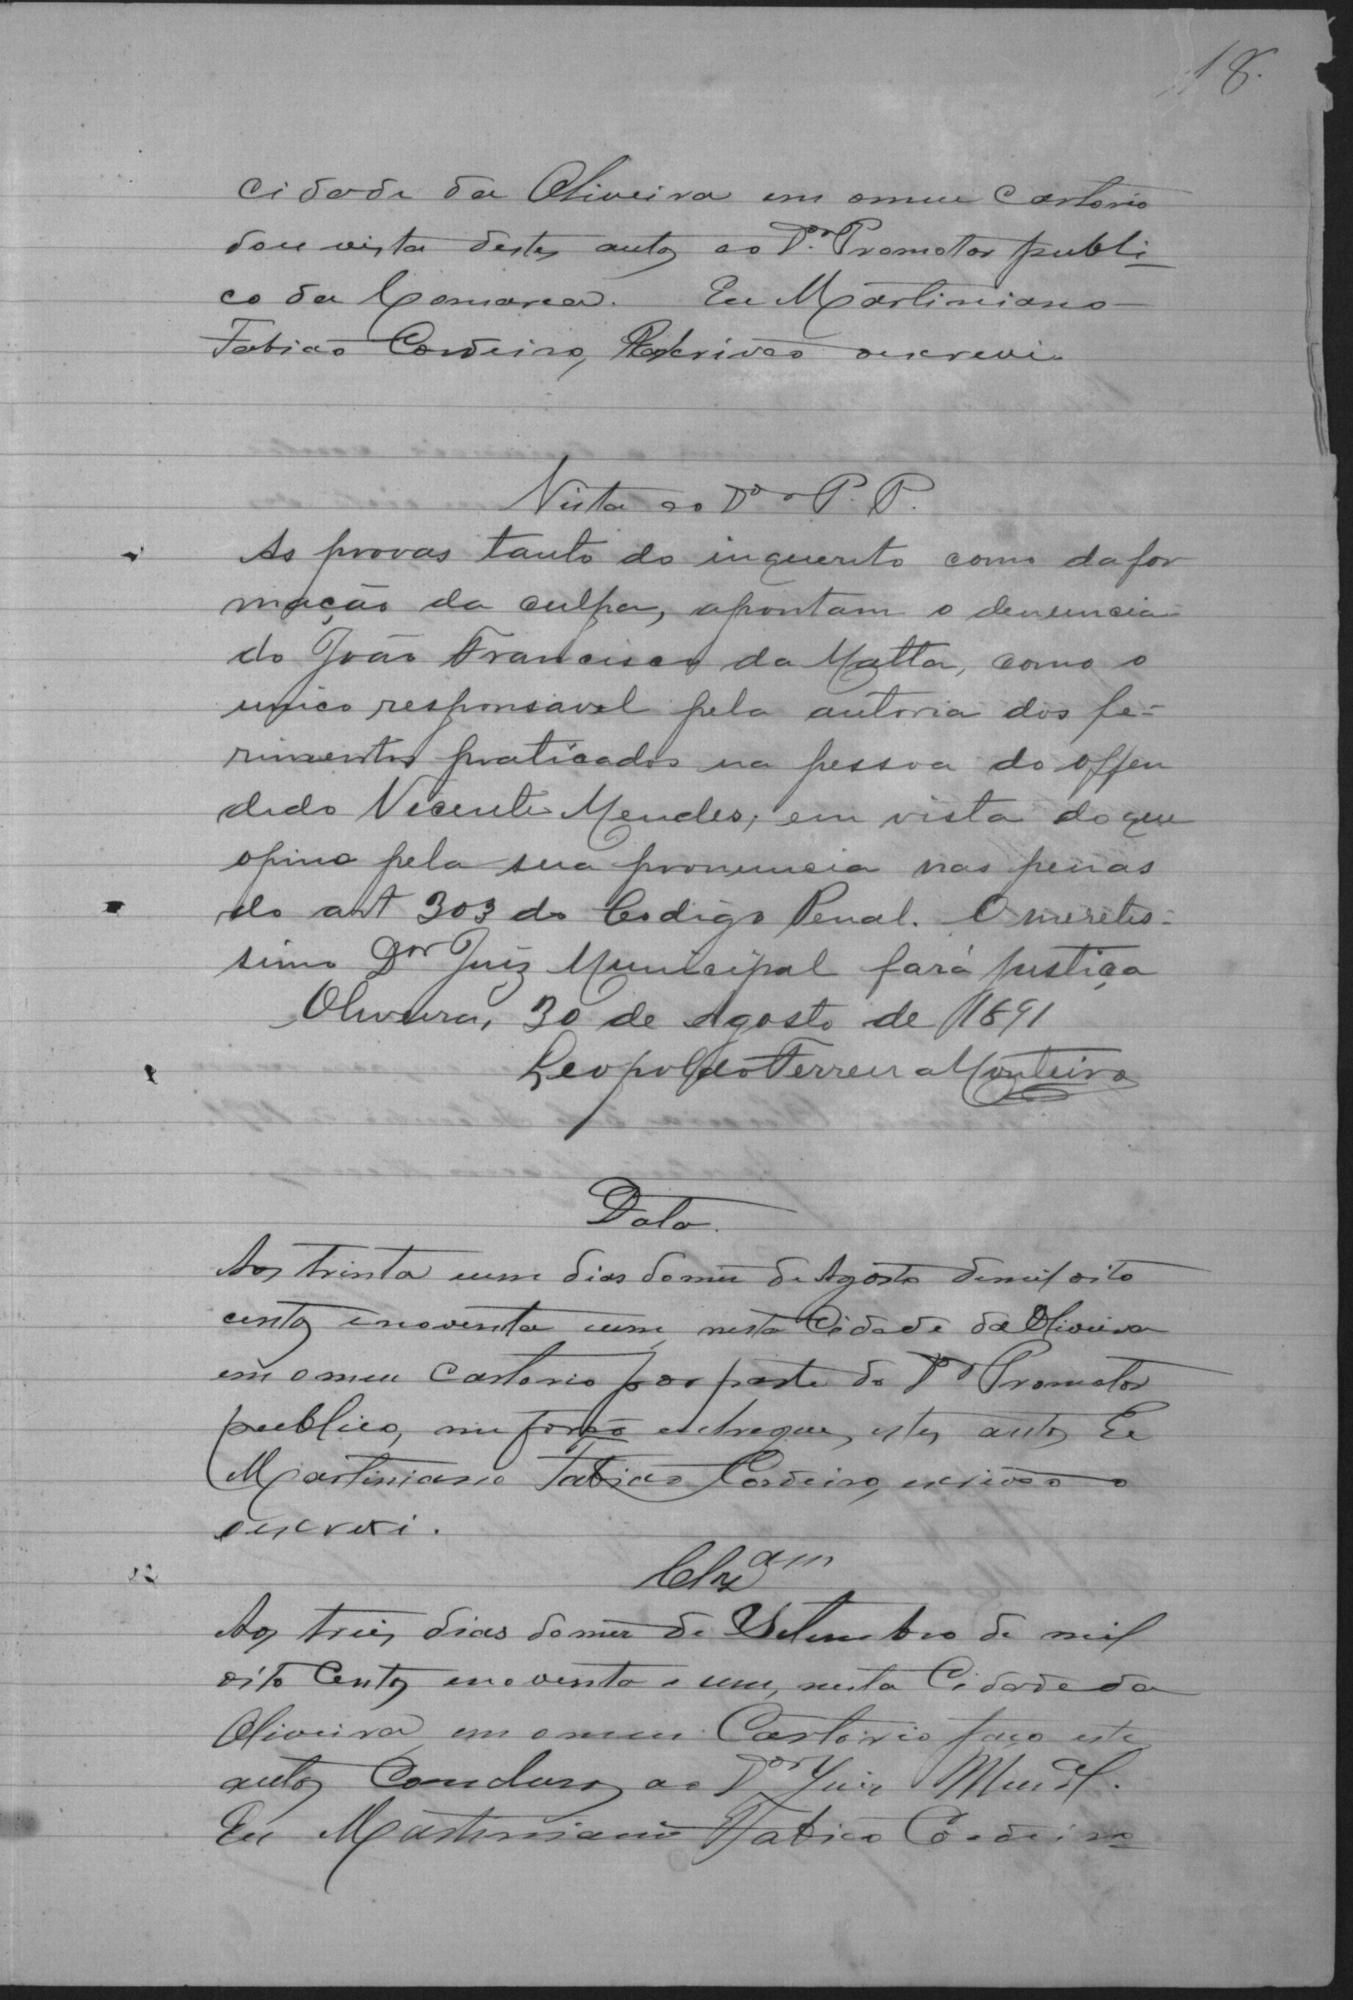 18.
cidade da Oliveira em omeu Cartorio
dou vista destes autos ao Dor. Promotor publi-
co da Comarca. Eu Martiniano
Fabião Cordeiro, Escrivão oescrevi.
Vista ao Dor P. P.
As provas tanto do inquerito como da for
mação da culpa, apontam o denuncia
do João Francisco da Matta, como o
unico responsavel pela autoria dos fe-
rimentos praticados na pessoa do offen
dido Vicente Mendes; em vista do que
opino pela sua pronuncia nas penas
do art 303 do Codigo Penal. O meretis-
simo Dor Juiz Municipal fará justiça
Oliveira, 30 de Agosto de 1891
Leopoldo Ferreira Monteiro
Data.
Aos trinta eum dias domez de Agosto demil oito
centos enoventa eum, nesta Cidade da Oliveira
em omeu Cartorio por parte do Dor Promotor
publico, me forão entregues, estes autos Eu
Martiniano Fabião Cordeiro, escrivão o
oescrevi.
Clzam
Aos trêis dias domez de Setembro de mil
oito Centos enoventa e um, nesta Cidade da
Oliveira em omeu Cartorio faço estes
autos Concluzos ao Dor Juiz Munal.
Eu Martiniano Fabião Cordeiro